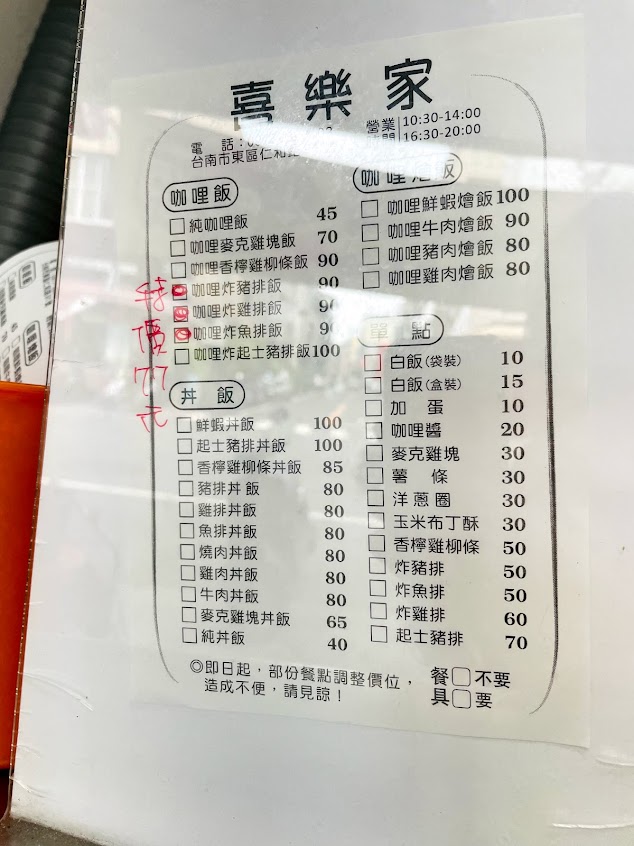 喜樂家
電 話：0
台南市東區仁和
營業 10:30-14:00
時間 16:30-20:00
咖哩飯
純咖哩飯 45
咖哩麥克雞塊飯 70
咖哩香檸雞柳條飯 90
咖哩炸豬排飯 90
咖哩炸雞排飯 90
咖哩炸魚排飯 90
咖哩炸起士豬排飯 100
特價77元
丼飯
鮮蝦丼飯 100
起士豬排丼飯 100
香檸雞柳條丼飯 85
豬排丼飯 80
雞排丼飯 80
魚排丼飯 80
燒肉丼飯 80
雞肉丼飯 80
牛肉丼飯 80
麥克雞塊丼飯 65
純丼飯 40
咖哩燴飯
咖哩鮮蝦燴飯 100
咖哩牛肉燴飯 90
咖哩豬肉燴飯 80
咖哩雞肉燴飯 80
單點
白飯(袋裝) 10
白飯(盒裝) 15
加 蛋 10
咖哩醬 20
麥克雞塊 30
薯 條 30
洋蔥圈 30
玉米布丁酥 30
香檸雞柳條 50
炸豬排 50
炸魚排 50
炸雞排 60
起士豬排 70
◎即日起，部份餐點調整價位，
造成不便，請見諒！
餐 不要
具 要